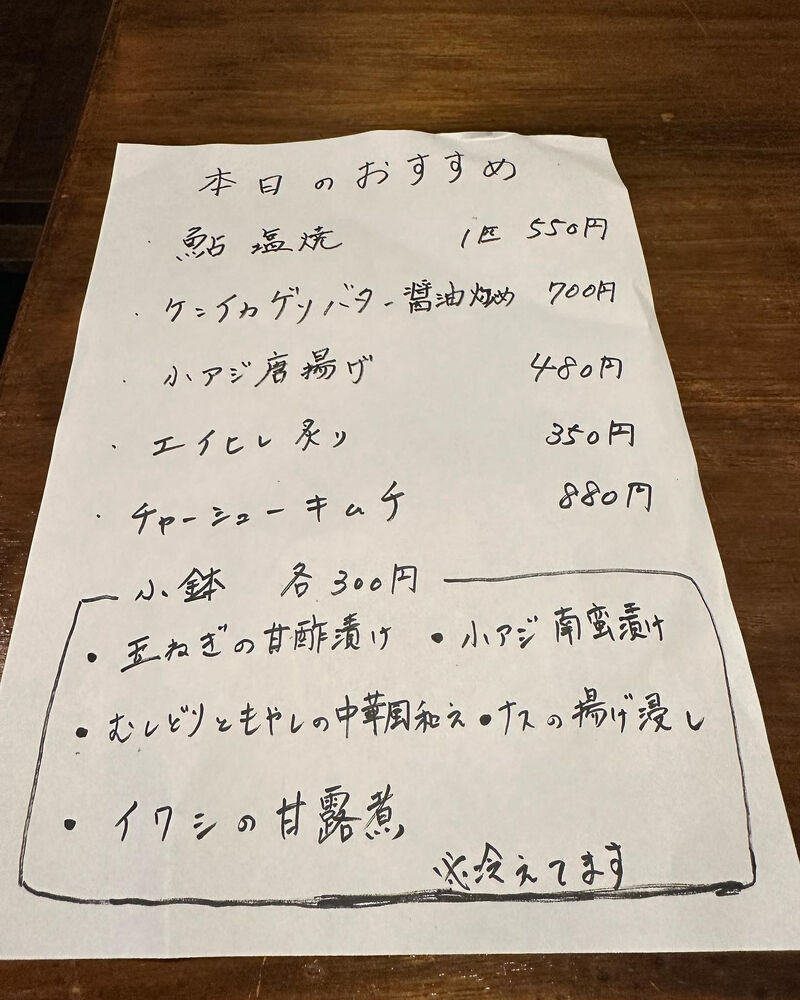 本日のおすすめ
・鮎塩焼 1匹 550円
・ケンイカゲソバター醤油炒め 700円
・小アジ唐揚げ 480円
・エイヒレ炙り 350円
・チャーシューキムチ 880円
小鉢 各300円
・玉ねぎの甘酢漬け ・小アジ南蛮漬け
・むしどりともやしの中華風和え ・ナスの揚げ浸し
・イワシの甘露煮
※冷えてます